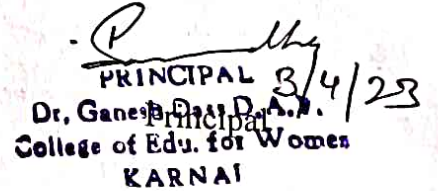 PRINCIPAL 3/4/23
Dr, Ganesh Dass D.A.V.
Principal
College of Edu. for Women
KARNAl